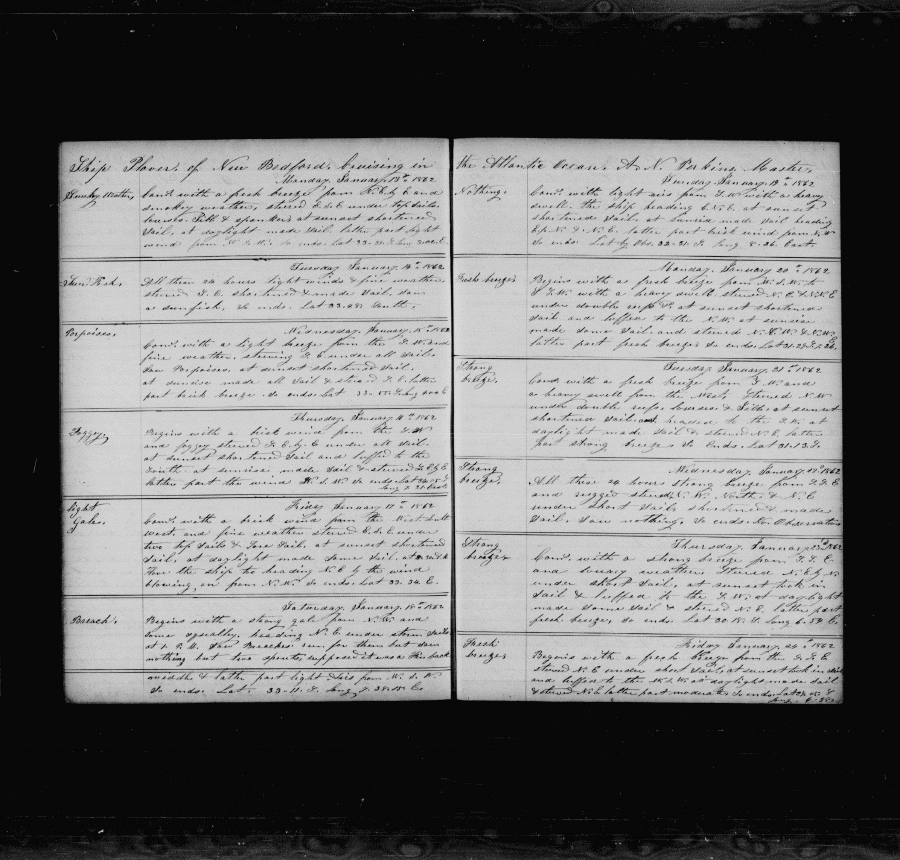 Ship Plover, of New Bedford, Cruising in
Monday, January, 13th 1862
Smoky Weather,
Com'd with a fresh breeze from N.E. by E and
smoky weather, steered S.S.E under top sails
courses & spanker at sunset shortened
sail, at daylight made sail latter part light
wind from So ends. Lat 33-
Tuesday January, 14th 1862
Sun Fish.
All these 24 hours light winds & fine weather,
steered S.E. shortened & made sail, saw
a sunfish, So ends. Lat 33.28 South.
Wednesday, January, 15th 1862
Porpoises,
Com'd with a light breeze from the S.W. and
fine weather, steering S.E under all sail.
Saw Porpoises, at sunset shortened sail,
at sunrise made all sail & steered S.E. latter
part brisk breeze So ends. Lat
Thursday, January 16th 1862
Foggy,
Begins with a brisk wind from the S.W
and foggy steered S.E. by E under all sail.
at sunset shortened sail and luffed to the
South at sunrise made sail & steered S.E by E
latter part the wind W.S.W. So ends. Lat
Friday January 17th 1862
light
Gales,
Com'd with a brisk wind from the West South
west, and fine weather steered E.S.E under
two top sails & Fore sail, at sunset shortened
sail, at daylight made some sail, at
the ship to heading N.E by the wind
blowing on from N.W. So ends. Lat 33. 34 S.
Saturday, January, 18th 1862
Breach,
Begins with a strong gale from N.W. and
some squally, heading N.E under storm sails
at 1 P.M. Saw Breaches run for them but saw
nothing but two spouts, supposed it was a Fin back
middle & latter part light airs from W.S.W
So ends. Lat, 33-11. S. Long
the Atlantic Ocean, A. N Perkins Master,
Sunday, January, 19th 1862
Nothing,
Com'd with light airs from S.W with a heavy
swell. the ship heading E.N.E. at sunset
shortened sail at sunrise made sail heading
E by N & N.E. latter part brisk wind from N.W
So ends Lat by Obs. 32-31 S. Long 8-26 East
Monday, January 20th 1862
Fresh breeze,
Begins with a fresh breeze from W.S.W. to
S.S.W. with a heavy swell, steered N.E. & N.N.E
under double reefs at sunset shortened
sail and luffed to the N.W. at sunrise
made some sail and steered
latter part fresh breeze So ends. Lat
Tuesday January, 21st 1862
Strong
breeze,
Com'd with a fresh breeze from S.W. and
a heavy swell from the West, Steered N.W
under double reefs, courses & at sunset
shortened sail and headed to the S.W. at
daylight made sail & steered N.E. latter
part strong breeze So Ends. Lat 31.13 S.
Wednesday, January, 22d 1862
Strong
breeze,
All these 24 hours strong breeze from S.S.E
and rugged steered N.W. North. & N.E
under short sails shortened & made
sail, saw nothing, So ends. No Observation
Thursday, January 23d 1862
Strong
breeze,
Com'd with a strong breeze from S.S.E.
and weather, Steered N.E. by N
under short sail, at sunset took in
sail & luffed to the S.W. at daylight
made some sail & steered N.E. latter part
fresh breeze, so ends. Lat 30 18. S. Long
Friday January, 24th 1862
Fresh
breeze
Begins with a fresh breeze from the S.S.E
steered N.E under short sail, at sunset took in sail
and luffed to the W.S.W at daylight made sail
& steered N.E latter part moderate So ends. Lat
Long